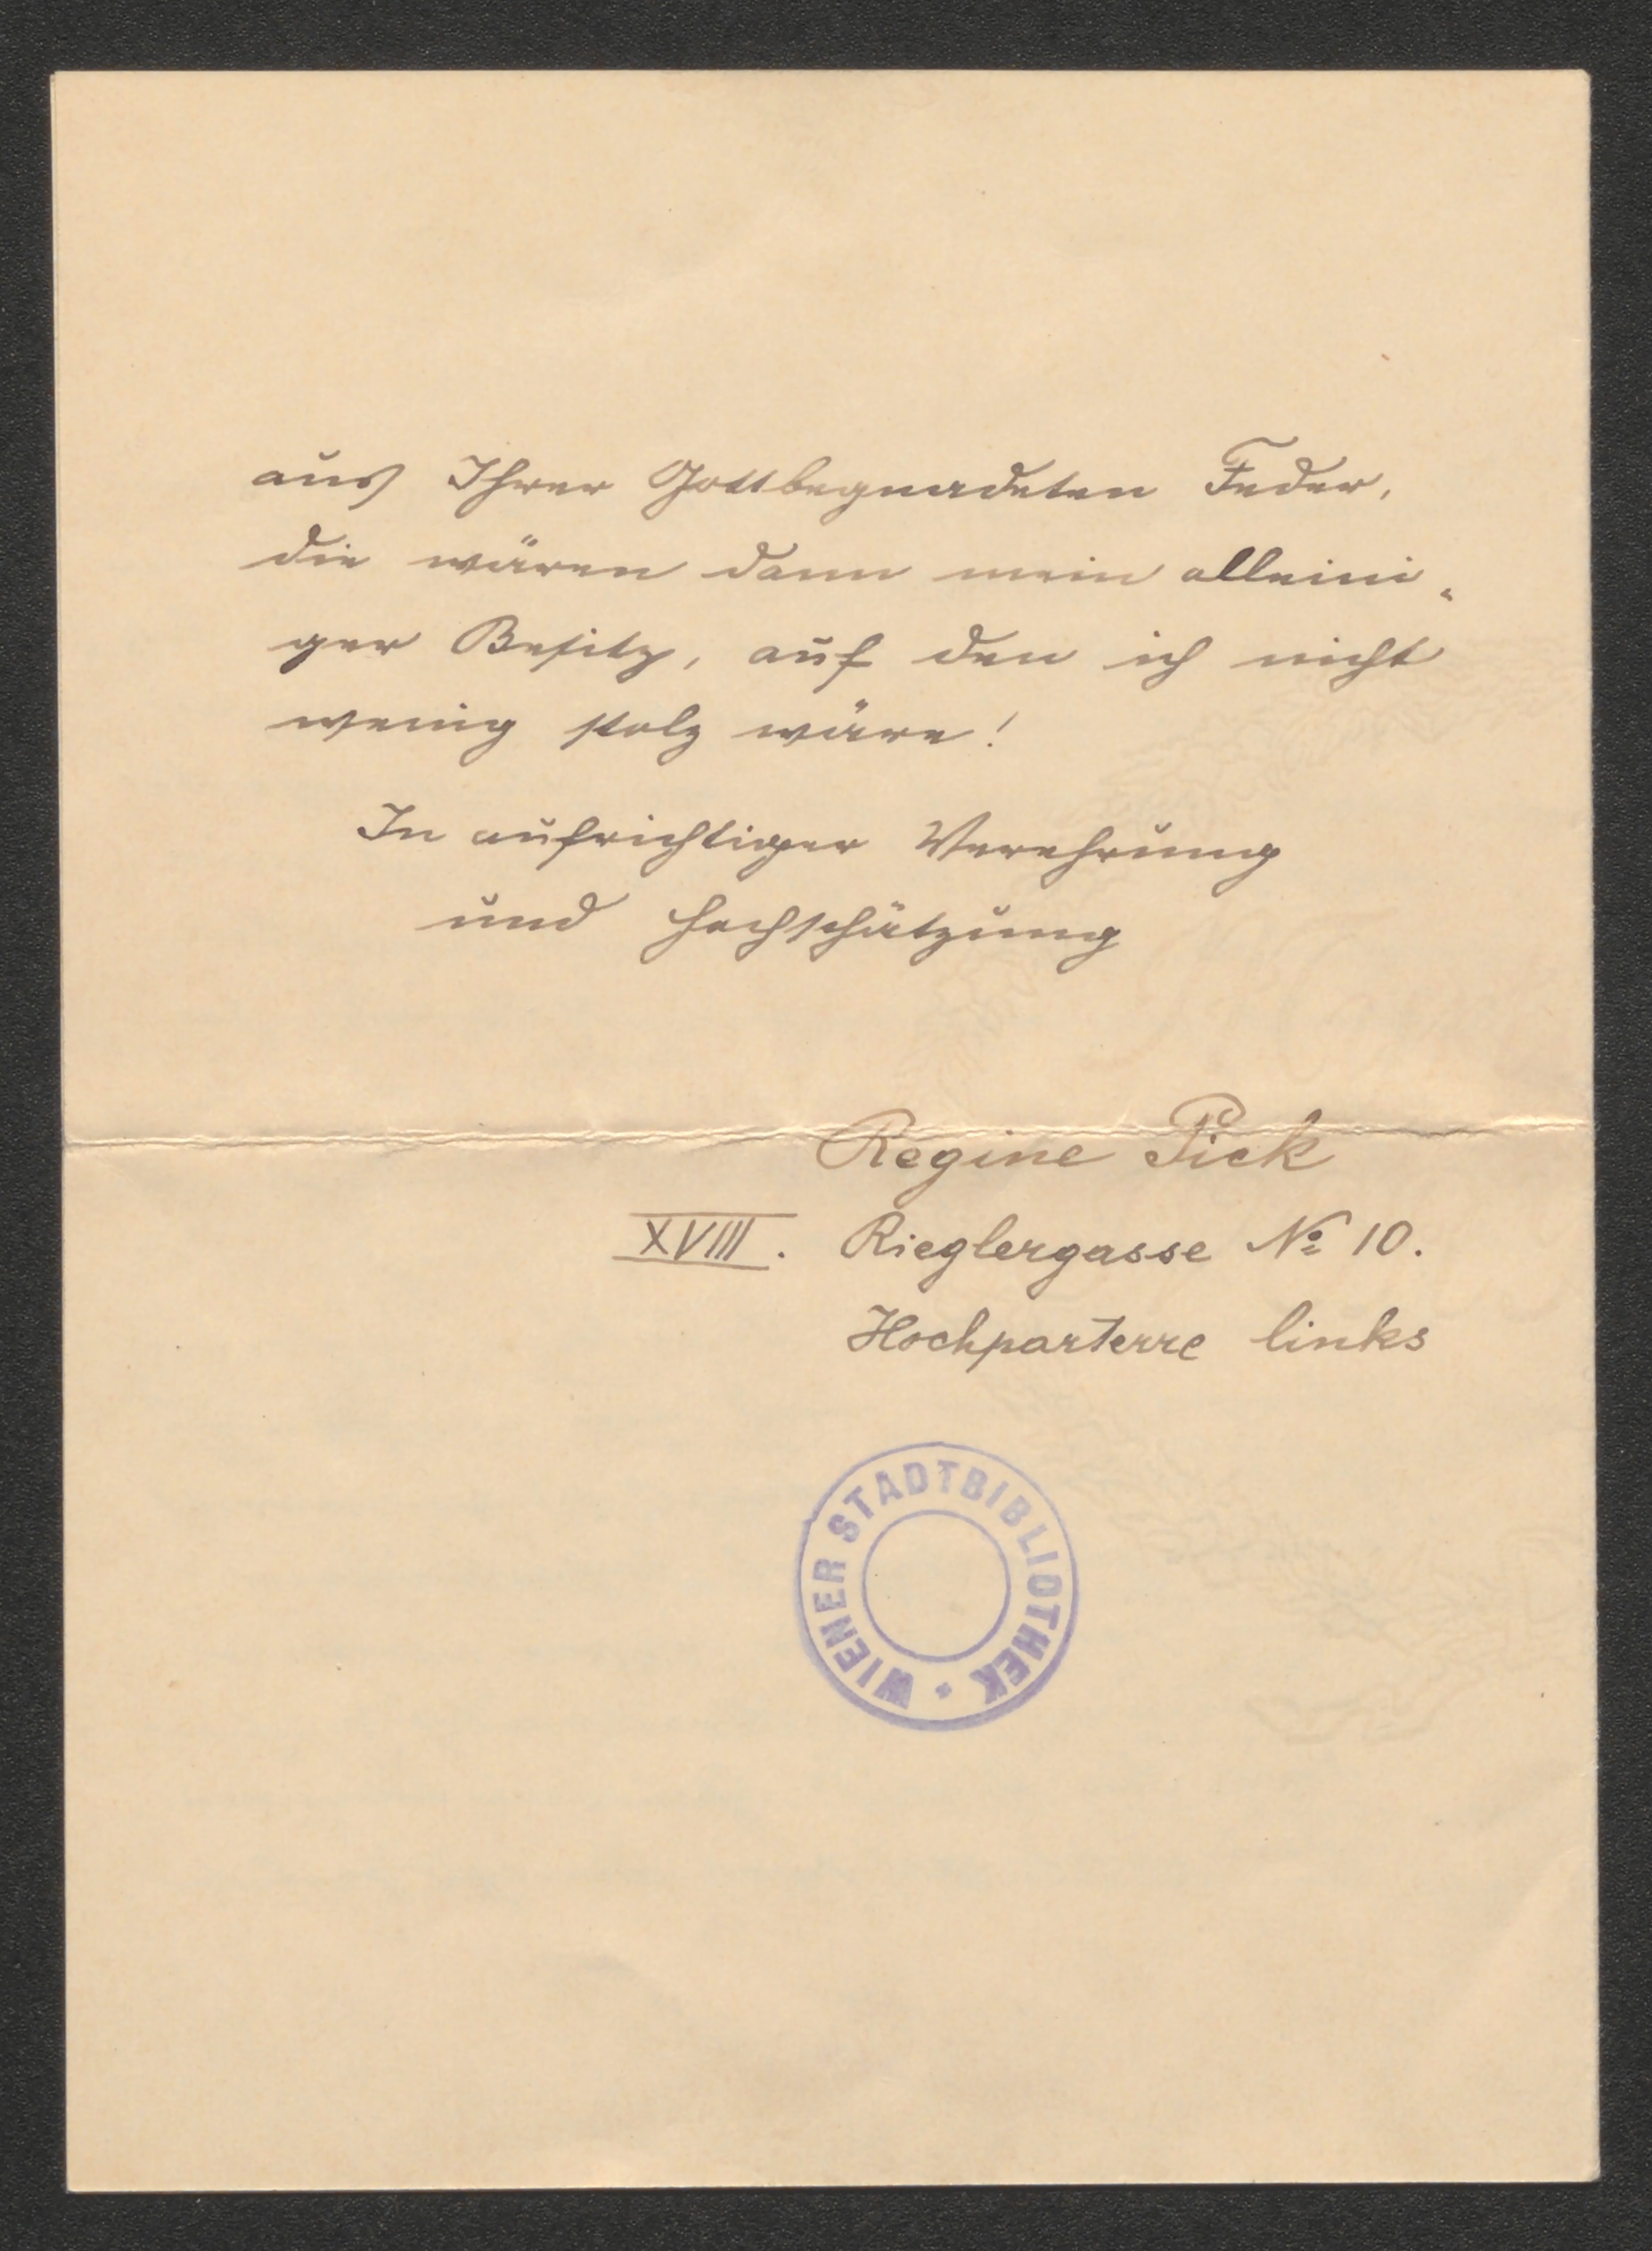 aus Ihrer Gottbegnadeten Feder,
die wären dann mein alleini-
ger Besitz, auf den ich nicht
wenig stolz wäre!
In aufrichtiger Verehrung
und Hochschätzung
Regine Pick
XVIII. Rieglergasse No 10.
Hochparterre links
WIENER STADTBIBLIOTHEK *